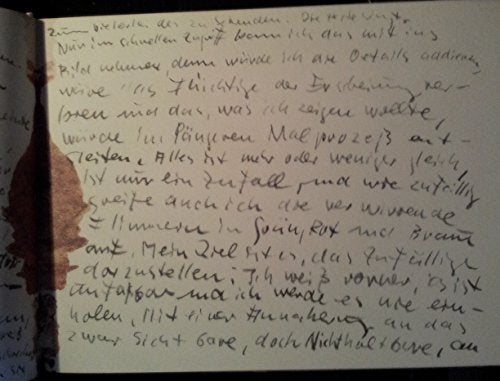 zum des zu Sehenden.
Nur im schnellen Zugriff kann ich das mit ins
Bild nehmen, denn würde ich die Details addieren,
wäre das Flüchtige der Erscheinung ver-
loren und das, was ich zeigen wollte,
würde im längeren Malprozeß ent-
gleiten. Alles ist mehr oder weniger gleich,
ist nur ein Zufall, und wie zufällig
greife auch ich die verwirrende
Flimmern in Grün, Rot und Braun
auf. Mein Ziel ist es, das Zufällige
darzustellen. Ich weiß vorher, es ist
unfassbar und ich werde es nie ein-
holen. Mit einer Annäherung an das
zwar Sichtbare, doch Nichthaltbare, an